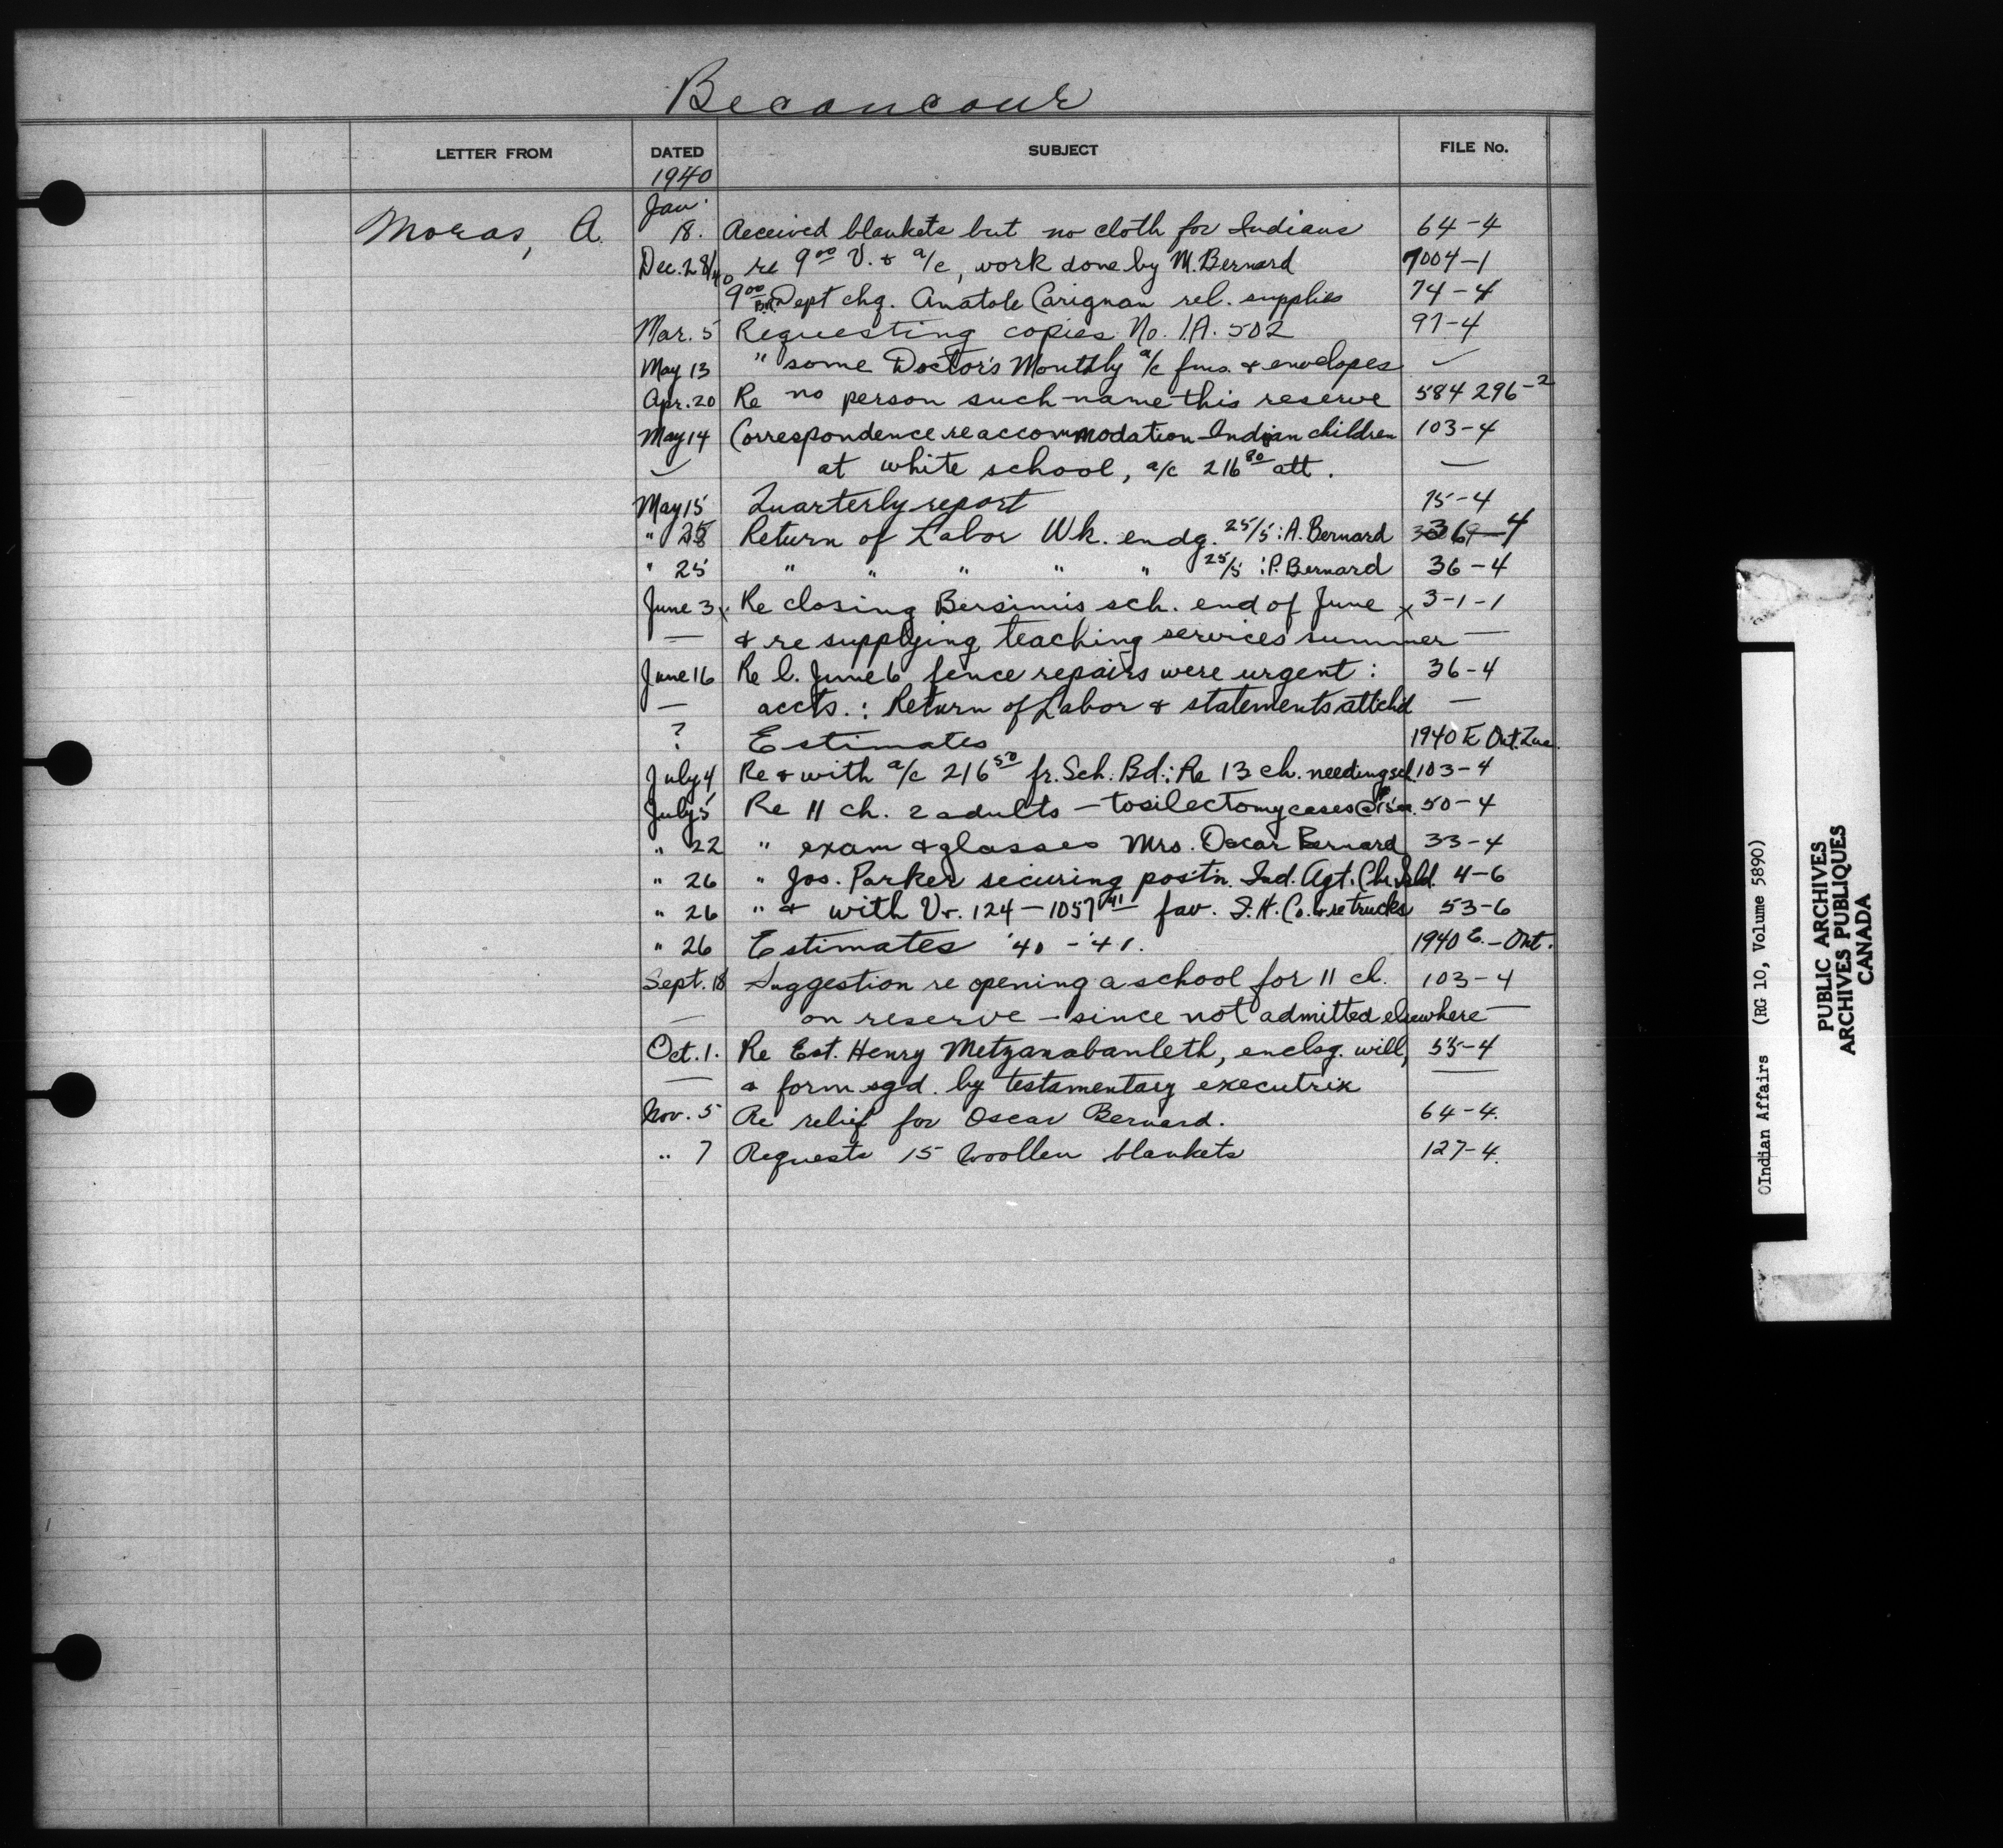 Becancour
LETTER FROM DATED SUBJECT FILE No.
1940
Jan.
Moras, A. 18. Received blankets but no cloth for Indians 64-4
Dec. 28/40 re 9⁰⁰ V. & a/c, work done by M. Bernard 7004-1
9⁰⁰ Dept chq. Anatole Carignan rel. supplies 74-4
Mar. 5 Requesting copies No. I.A. 502 97-4
May 13 " some Doctor's Monthly a/c fms. & envelopes ✓
Apr. 20 Re no person such name this reserve 584 296-2
May 14 Correspondence re accommodation Indian children 103-4
✓ at white school, a/c 216⁸⁰ att. —
May 15 Quarterly report 75-4
" 28 Return of Labor Wk. endg. 25/5 : A. Bernard 36-4
" 25 " " " " " 25/5 : P. Bernard 36-4
June 3 x Re closing Bersimis sch. end of June x 3-1-1
— & re supplying teaching services summer —
June 16 Re l. June 6 fence repairs were urgent : 36-4
— accts. : Return of Labor & statements attchd —
? Estimates 1940 E Ont. Que.
July 4 Re & with a/c 216⁵⁰ fr. Sch. Bd. : Re 13 ch. needing sch. 103-4
July 5 Re 11 ch. 2 adults - tosilectomy cases @ 50-4
" 22 " exam & glasses Mrs. Oscar Bernard 33-4
" 26 " Jos. Parker securing postn. Ind. Agt. 4-6
" 26 " & with Vr. 124 - 1057⁴¹ fav. I. H. Co. & re trucks 53-6
" 26 Estimates '40 - '41. 1940 E. - Ont.
Sept. 18 Suggestion re opening a school for 11 ch. 103-4
— on reserve - since not admitted elsewhere —
Oct. 1. Re Est. Henry Metzanabanleth, enclsg. will, 55-4
— a form sgd. by testamentary executrix —
Nov. 5 Re relief for Oscar Bernard. 64-4.
" 7 Requests 15 Woollen blankets 127-4.
Indian Affairs (RG 10, Volume 5890)
PUBLIC ARCHIVES
ARCHIVES PUBLIQUES
CANADA